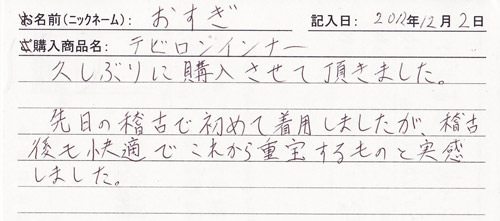 お名前(ニックネーム): おすぎ 記入日: 2012年12月2日
ご購入商品名: テビロンインナー
久しぶりに購入させて頂きました。
先日の稽古で初めて着用しましたが、稽古
後も快適でこれから重宝するものと実感
しました。